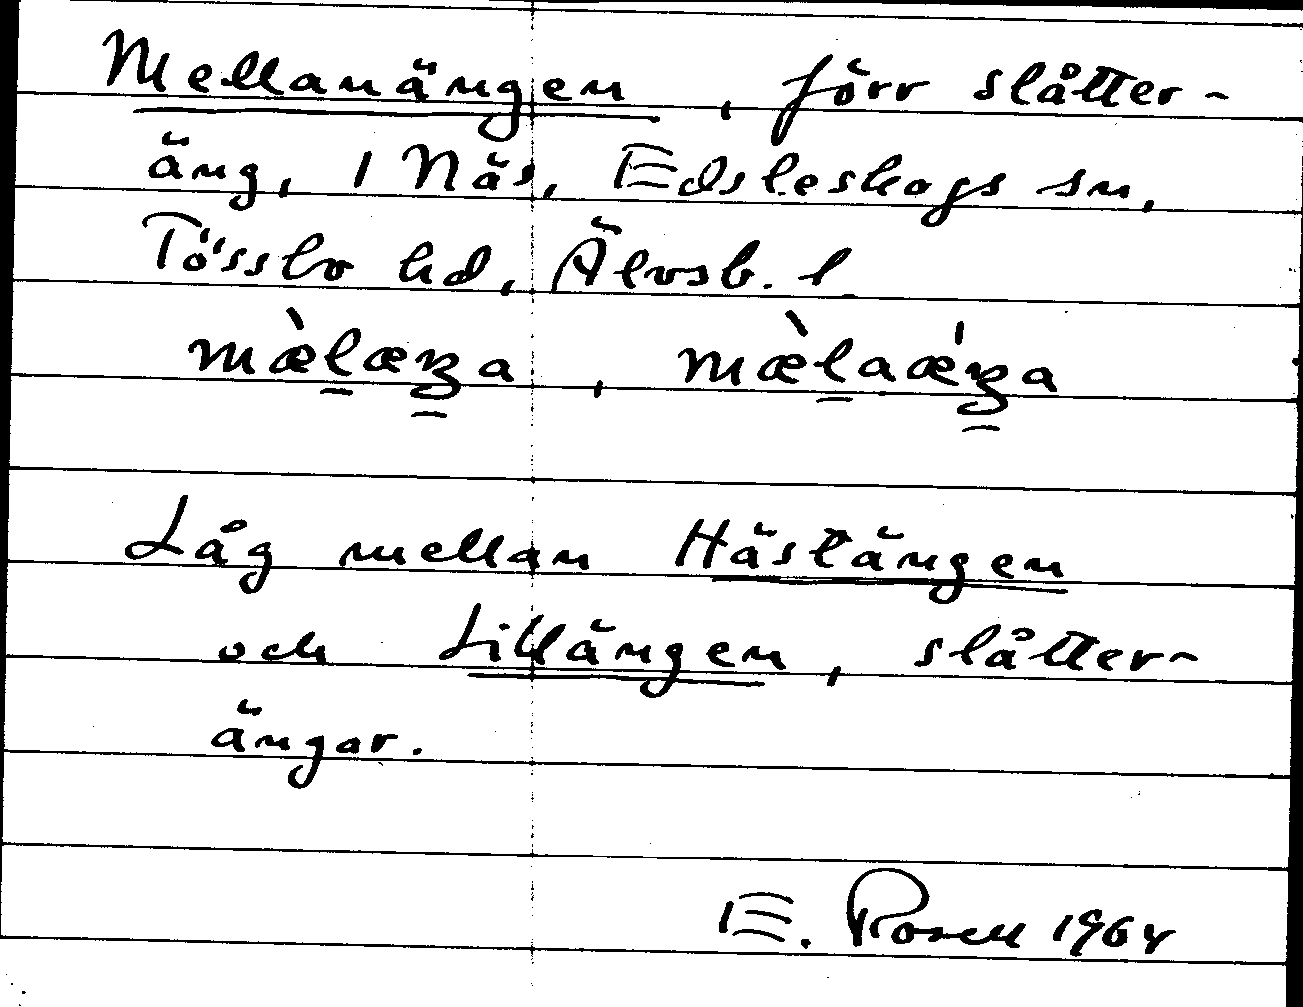 Mellanängen, förr slåtter-
äng, 1 Näs, Edsleskogs sn,
Tössbo hd, Älvsb. l.
mæ̀l̠æŋ̠a, mæ̀l̠aǽŋ̠a
Låg mellan Hästängen
och Lillängen, slåtter-
ängar.
E. Rosell 1964